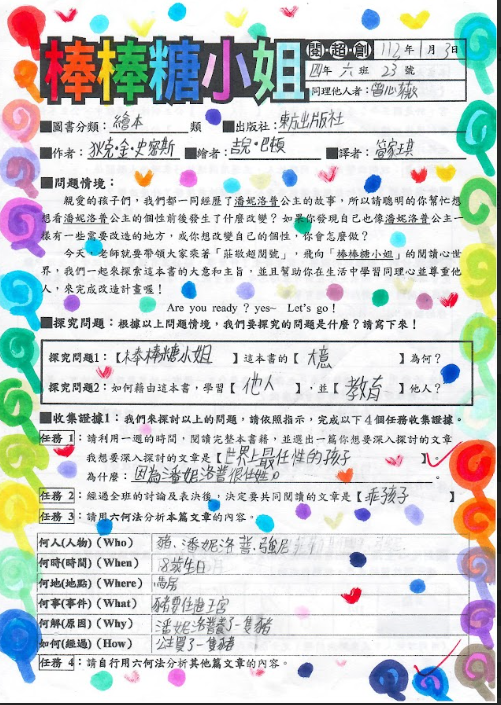 棒棒糖小姐
閱、超、創 112年1月3日
四年六班23號
同理他人者：
■圖書分類：繪本類 ■出版社：東方出版社
■作者：狄克·金·史密斯 ■繪者：吉兒·巴頓 ■譯者：管家琪
■問題情境：
親愛的孩子們，我們都一同經歷了潘妮洛普公主的故事，所以請聰明的你幫忙想
想看潘妮洛普公主的個性前後發生了什麼改變？如果你發現自己也像潘妮洛普公主一
樣有一些需要改造的地方，或你想改變自己的個性，你會怎麼做？
今天，老師就要帶領大家乘著「莊敬超閱號」，飛向「棒棒糖小姐」的閱讀心世
界，我們一起來探索這本書的大意和主旨，並且幫助你在生活中學習同理心並尊重他
人，來完成改造計畫喔！
Are you ready？yes~ Let's go！
■探究問題：根據以上問題情境，我們要探究的問題是什麼？請寫下來！
探究問題1：【棒棒糖小姐】這本書的【大意】為何？
探究問題2：如何藉由這本書，學習【他人】，並【教育】他人？
■收集證據1：我們來探討以上的問題，請依照指示，完成以下4個任務收集證據。
任務1：請利用一週的時間，閱讀完整本書籍，並選出一篇你想要深入探討的文章。
我想要深入探討的文章是【世界上最任性的孩子】。
為什麼：因為潘妮洛普很任性。
任務2：經過全班的討論及表決後，決定要共同閱讀的文章是【乖孩子】
任務3：請用六何法分析本篇文章的內容。
何人(人物)（Who） 豬、潘妮洛普、強尼
何時(時間)（When） 8歲生日
何地(地點)（Where）
何事(事件)（What） 豬要住進王宮
何解(原因)（Why） 潘妮洛普養了一隻豬
如何(經過)（How） 公主買了一隻豬
任務4：請自行用六何法分析其他篇文章的內容。